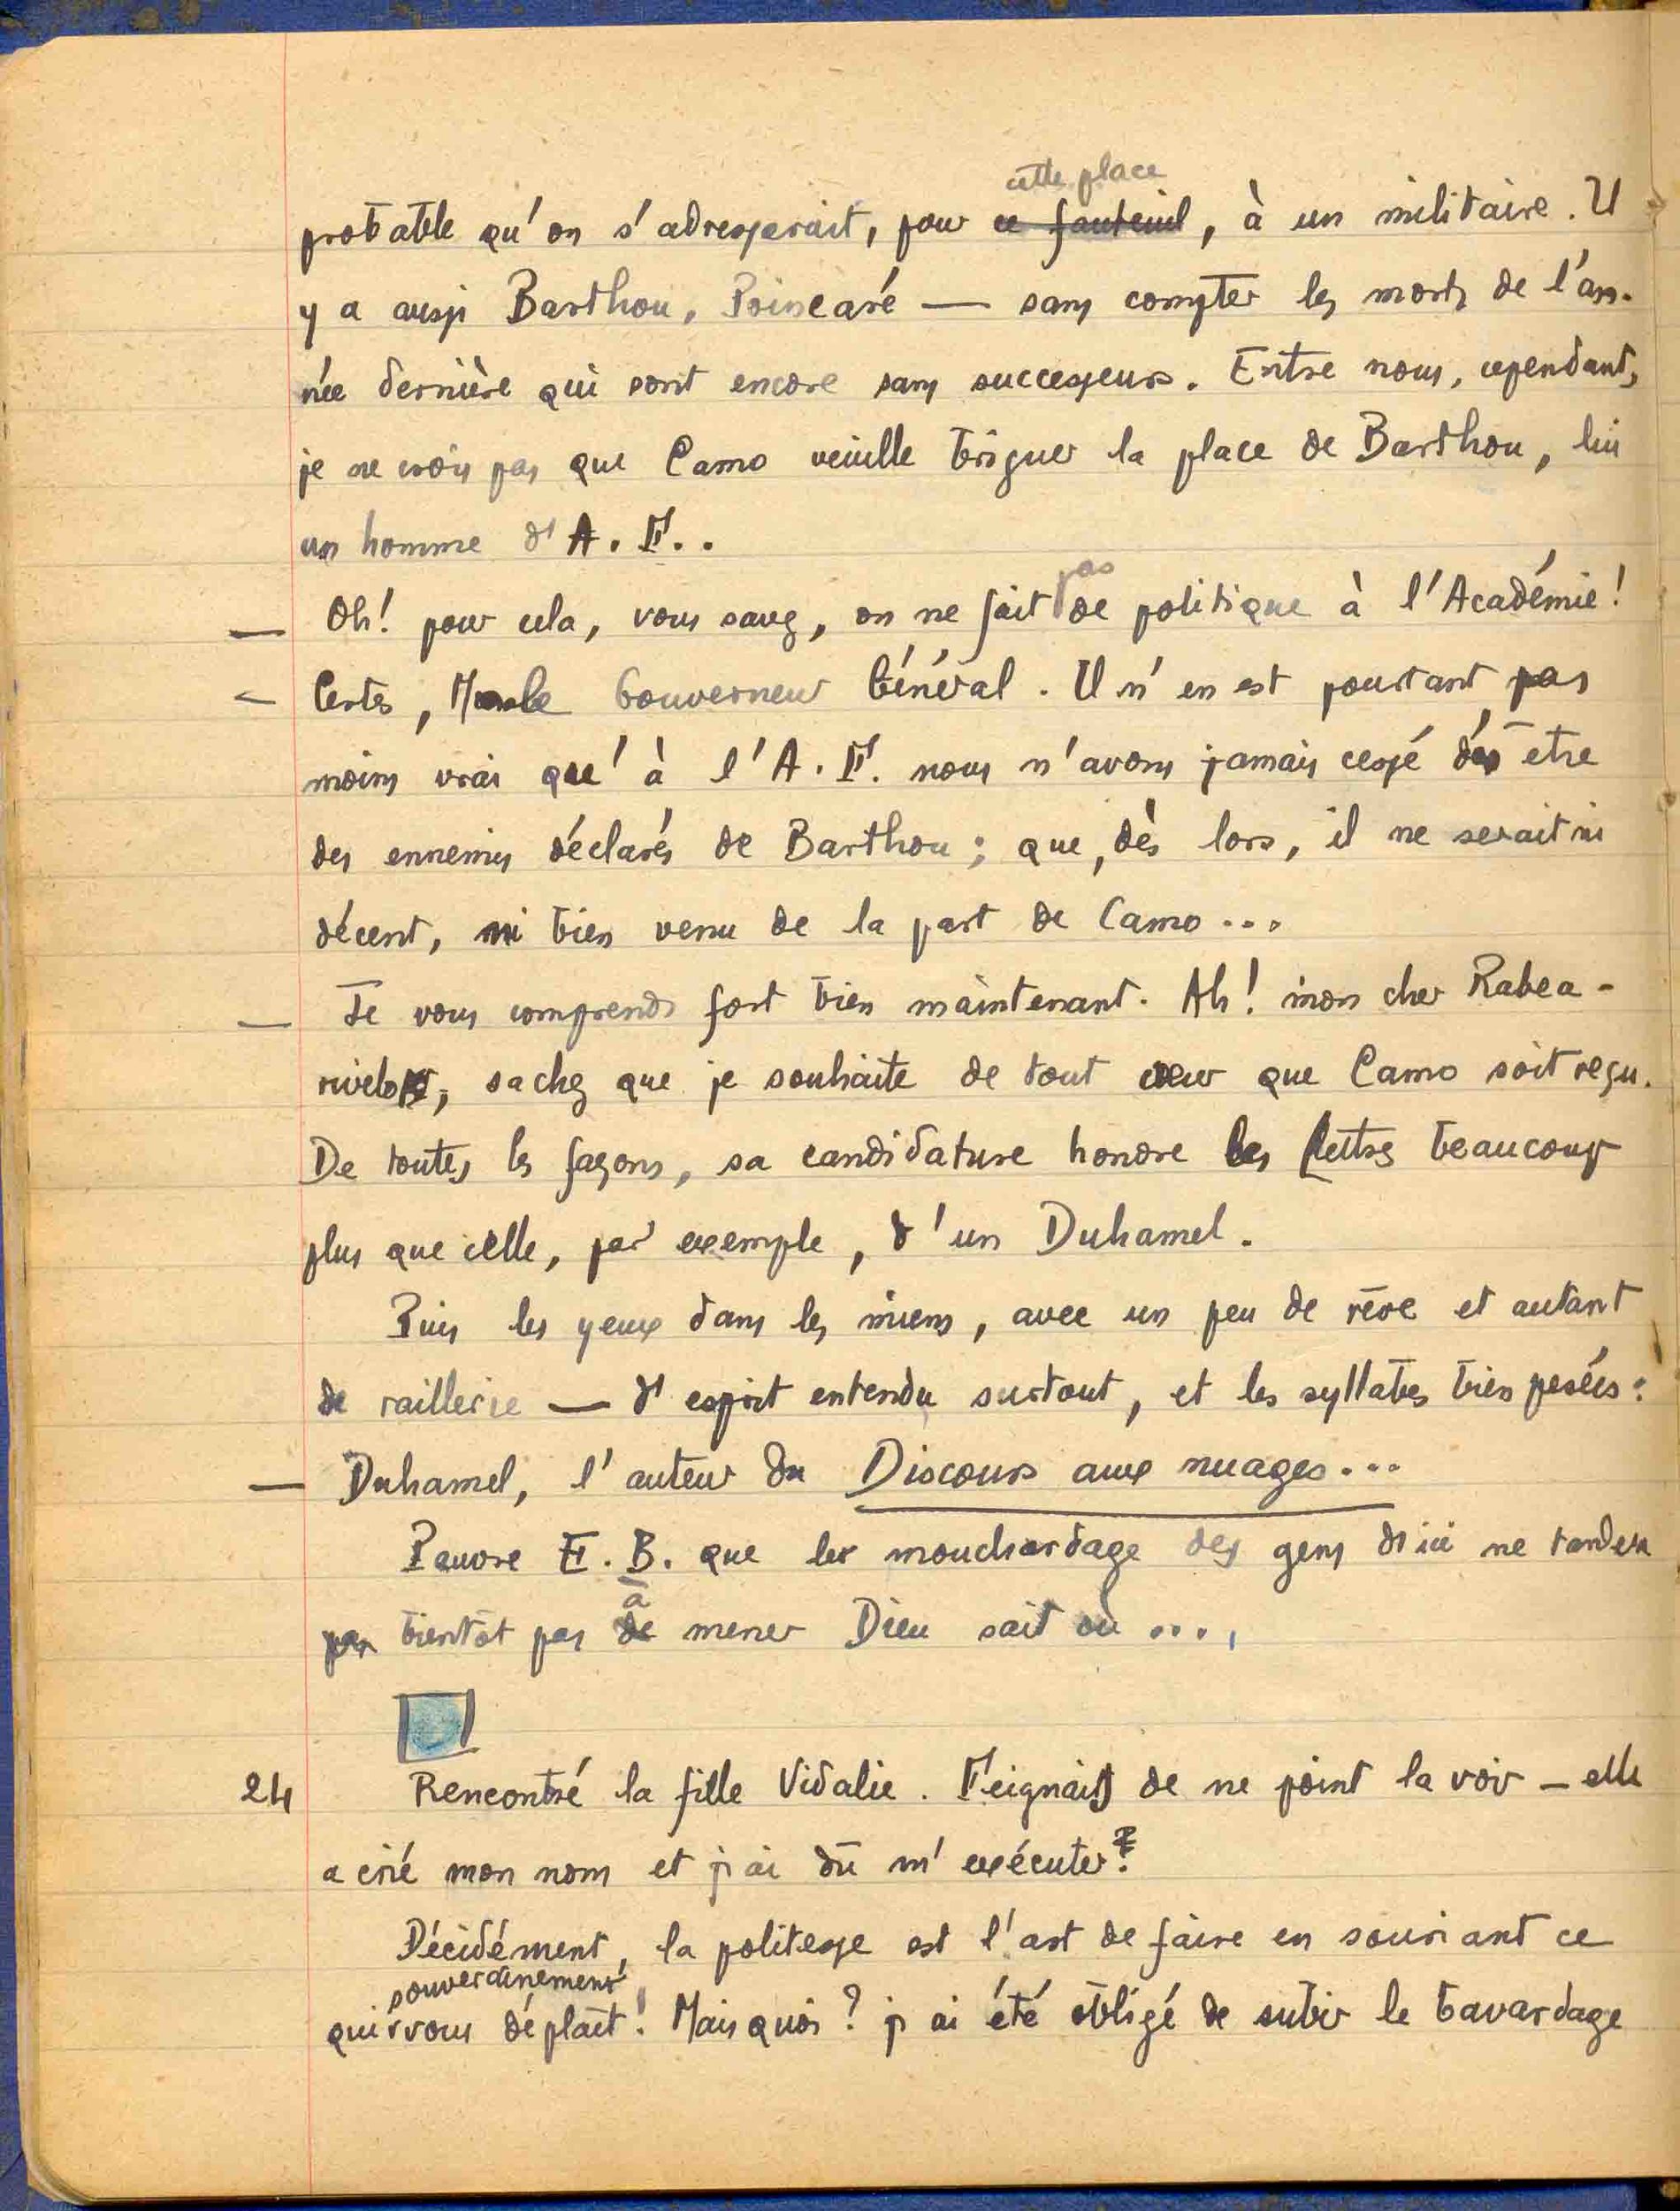 probable qu'on s'adresserait, pour cette place ce fauteuil, à un militaire. Il
y a aussi Barthou, Poincaré — sans compter les morts de l'an-
née dernière qui sont encore sans successeurs. Entre nous, cependant,
je ne crois pas que Camo veuille briguer la place de Barthou, lui
un homme d'A. F..
— Oh! pour cela, vous savez, on ne fait pas de politique à l'Académie!
— Certes, M le Gouverneur Général. Il n'en est pourtant pas
moins vrai qu'à l'A. F. nous n'avons jamais cessé d'être
des ennemis déclarés de Barthou; que, dès lors, il ne serait ni
décent, ni bien venu de la part de Camo...
— Je vous comprends fort bien maintenant. Ah! mon cher Rabea-
rivelo, sachez que je souhaite de tout cœur que Camo soit reçu.
De toutes les façons, sa candidature honore les Lettres beaucoup
plus que celle, par exemple, d'un Duhamel.
Puis les yeux dans les miens, avec un peu de rêve et autant
de raillerie — d'esprit entendu surtout, et les syllabes bien pesées:
— Duhamel, l'auteur du Discours aux nuages...
Pauvre E. B. que le mouchardage des gens d'ici ne tardera
pas bientôt pas à de mener Dieu sait où ...,
24 Rencontré la fille Vidalie. Feignais de ne point la voir — elle
a crié mon nom et j'ai dû m'exécuter.
Décidément, la politesse est l'art de faire en souriant ce
qui souverainement vous déplaît! Mais quoi? j'ai été obligé de subir le bavardage